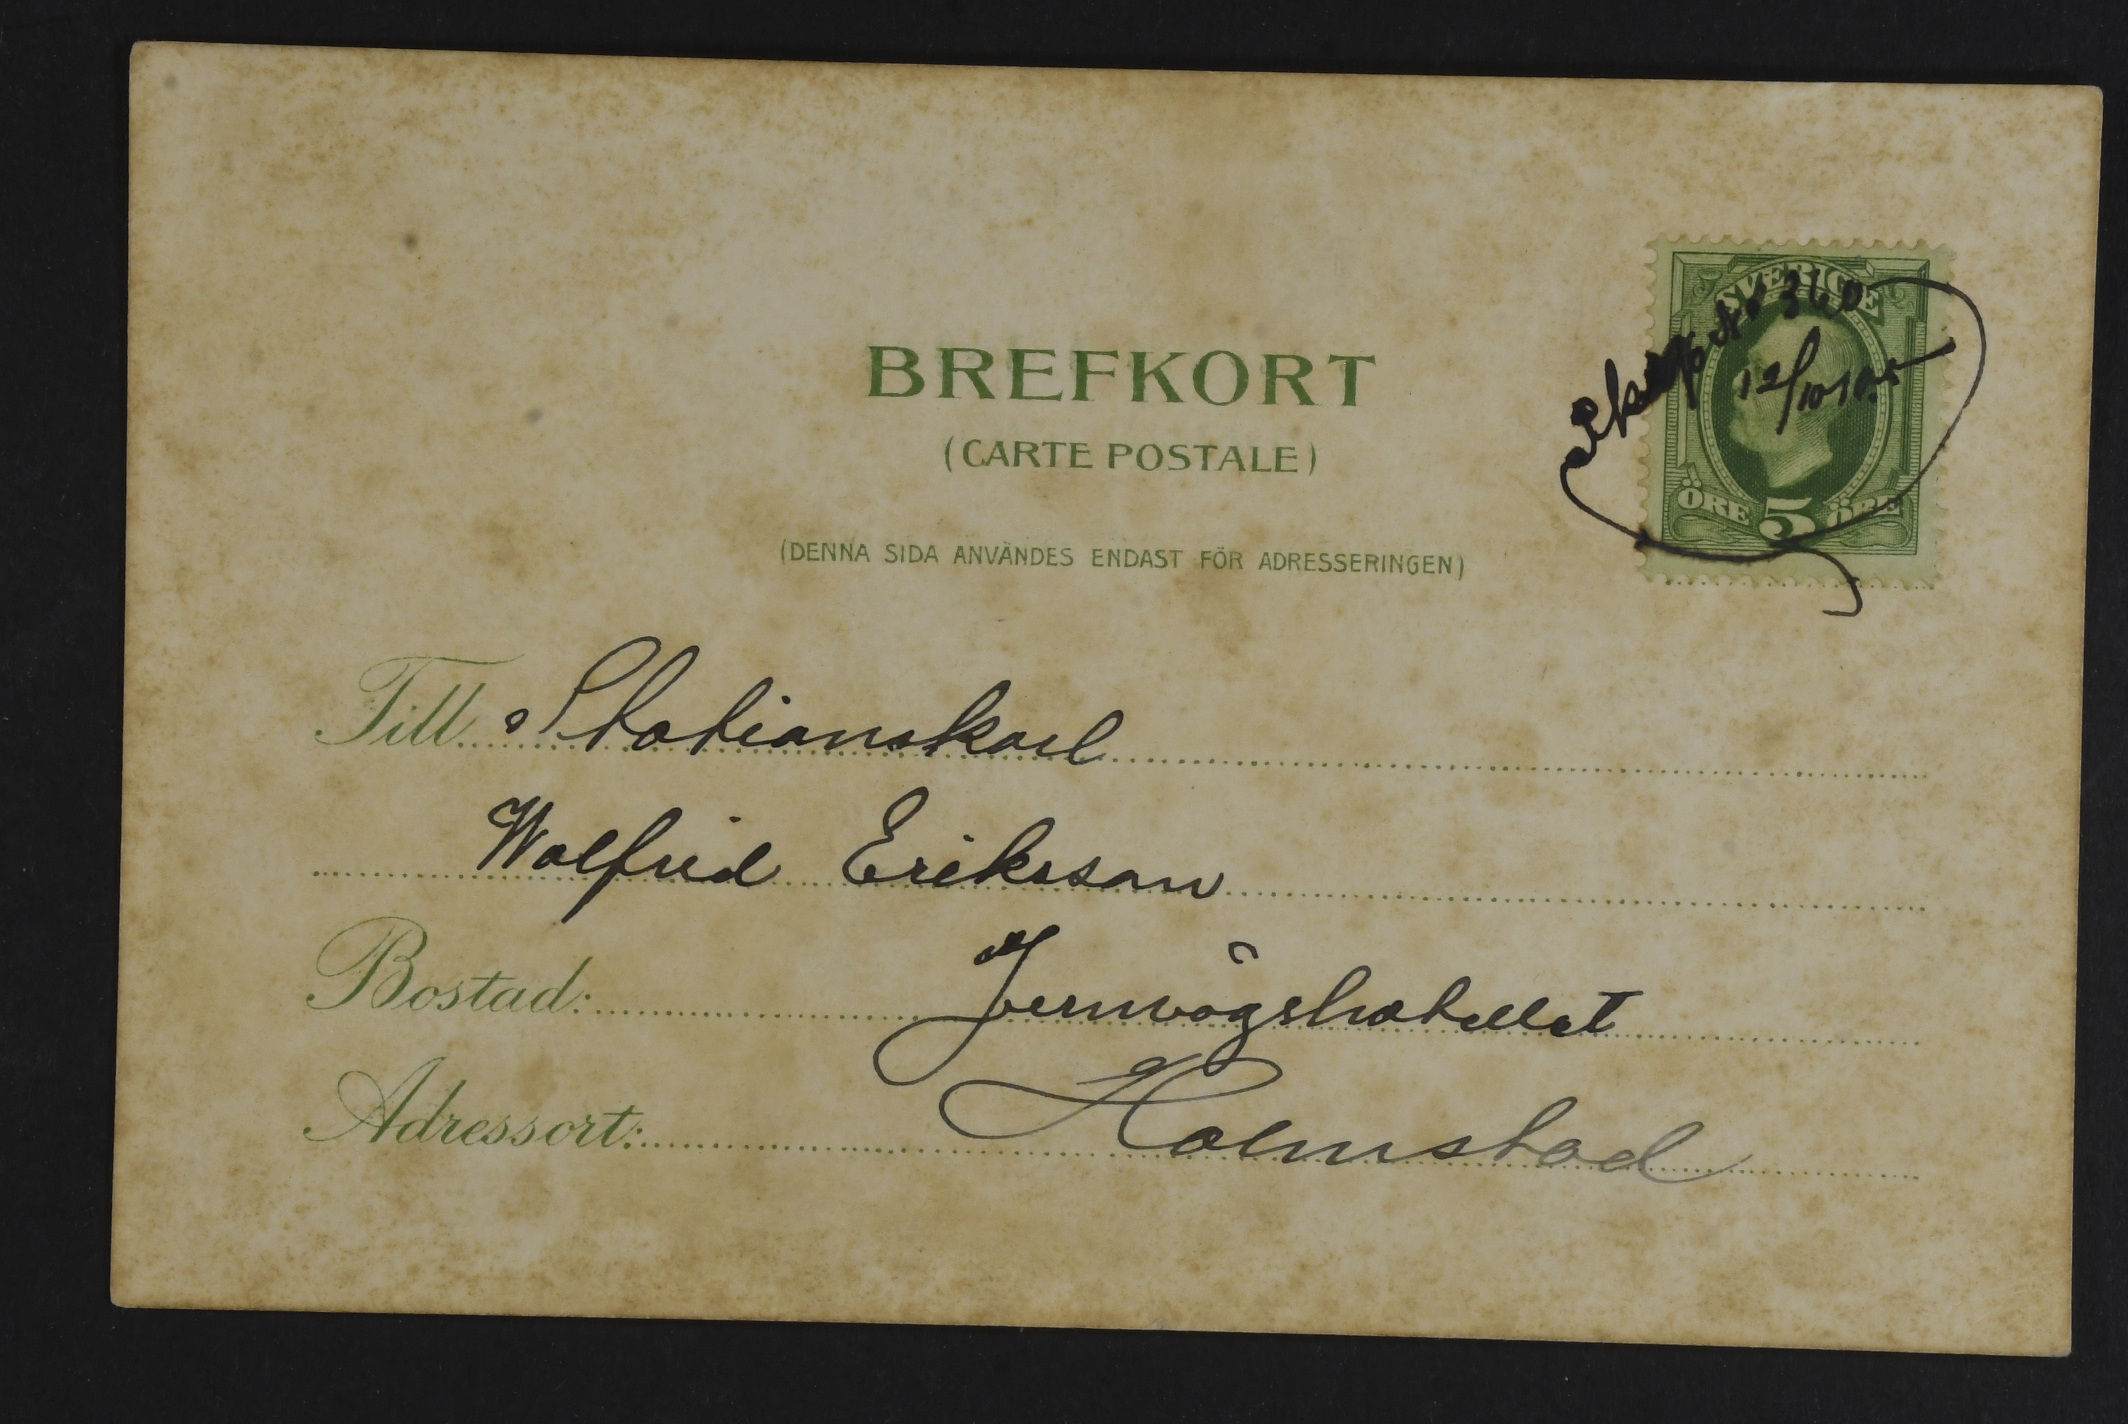 BREFKORT
(CARTE POSTALE)
(DENNA SIDA ANVÄNDES ENDAST FÖR ADRESSERINGEN)
SVERIGE
No 360
12/10 1905
ÖRE 5 ÖRE
Till Stationskarl
Wolfrid Eriksson
Bostad: Jernvägshotellet
Adressort: Halmstad